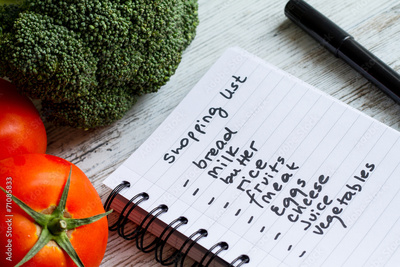 shopping list
- bread
- milk
- butter
- rice
- fruits
- meat
- eggs
- cheese
- juice
- vegetables
Adobe Stock | #71085833